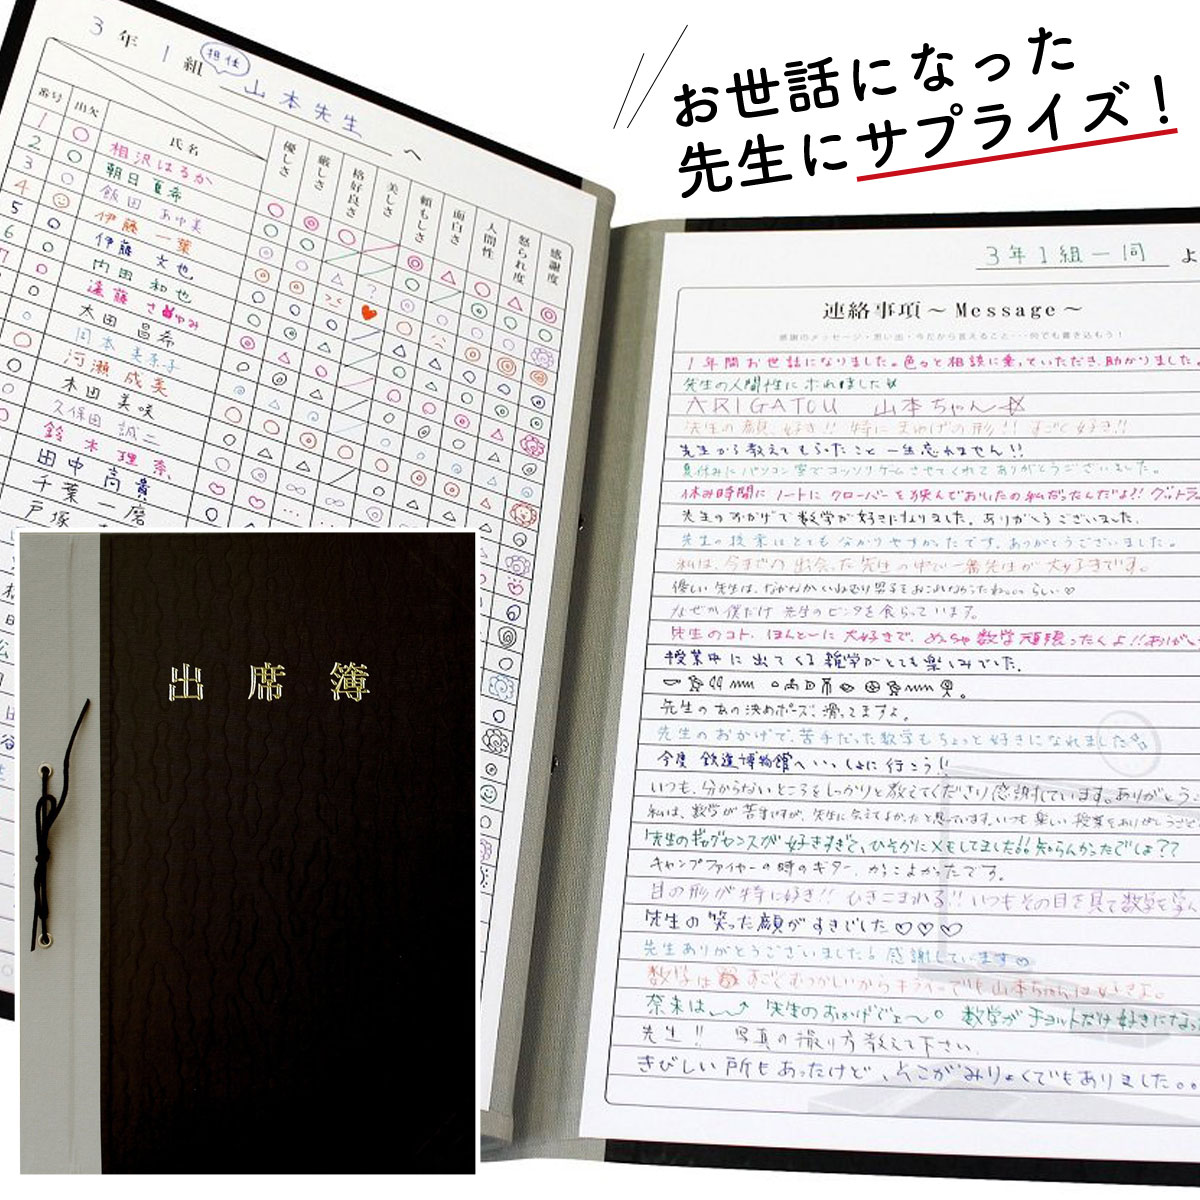 お世話になった
先生にサプライズ！
3年 1組 担任 山本先生 へ
番号 出欠 氏名 優しさ 厳しさ 格好良さ 美しさ 頼もしさ 面白さ 人間性 怒られ度 感謝度
1 相沢はるか
2 朝日夏希
3 飯田 あゆ美
4 伊藤 一葉
5 伊藤 文也
6 内田 和也
7 遠藤 さゆみ
太田 昌希
岡本 美奈子
河瀬 成美
木田 美咲
久保田 誠二
鈴木 理奈
田中 高貴
千葉 一磨
戸塚
出席簿
3年1組一同 よ
連絡事項～Message～
感謝のメッセージ・思い出・今だから言えること・・・何でも書き込もう！
1年間お世話になりました。色々と相談に乗っていただき、助かりました
先生の人間性にホれました
ARIGATOU 山本ちゃん☆
先生の顔、好き!! 特にまゆげの形!! すごく好き!!
先生から教えてもらったこと一生忘れません!!
夏休みにパソコン室でコッソリゲームさせてくれてありがとうございました。
休み時間にノートにクローバーを挟んでおいたの私だったんだよ!!
先生のおかげで数学が好きになりました。ありがとうございました。
先生の授業はとても分かりやすかったです。ありがとうございました。
私は、今までの出会った先生の中で一番先生が大好きです。
優しい先生は、なかなかいねむり男子をおこれなかったね。。。らしい♡
なぜか僕だけ先生のビンタを食らっています。
先生のコト、ほんとーに大好きで、めっちゃ数学頑張ったよ!!
授業中に出てくる雑学がとても楽しみでした。
先生のあの決めポーズ、滑ってますよ。
先生のおかげで、苦手だった数学もちょっと好きになれました
今度 鉄道博物館へいっしょに行こう!!
いつも、分からないところをしっかりと教えてくださり感謝しています。ありがとう
私は、数学が苦手ですが、先生に会えてよかったと思っています。いつも楽しい授業をありがとうござ
先生のギャグセンスが好きすぎて、ひそかにメモしてました!!知らんかったでしょ??
キャンプファイヤーの時のギター、かっこよかったです。
目の形が特に好き!! ひきこまれる!! いつもその目を見て数学を学ん
先生の笑った顔がすきでした♡♡♡
先生ありがとうございました! 感謝しています♡
数学はすごくむつかしいからキライーでも山本ちゃんは好きよ。
奈来は 先生のおかげでェ～。数学がチョットだけ好きにな
先生!! 写真の撮り方教えて下さい。
きびしい所もあったけど、そこがみりょくでもありました。。